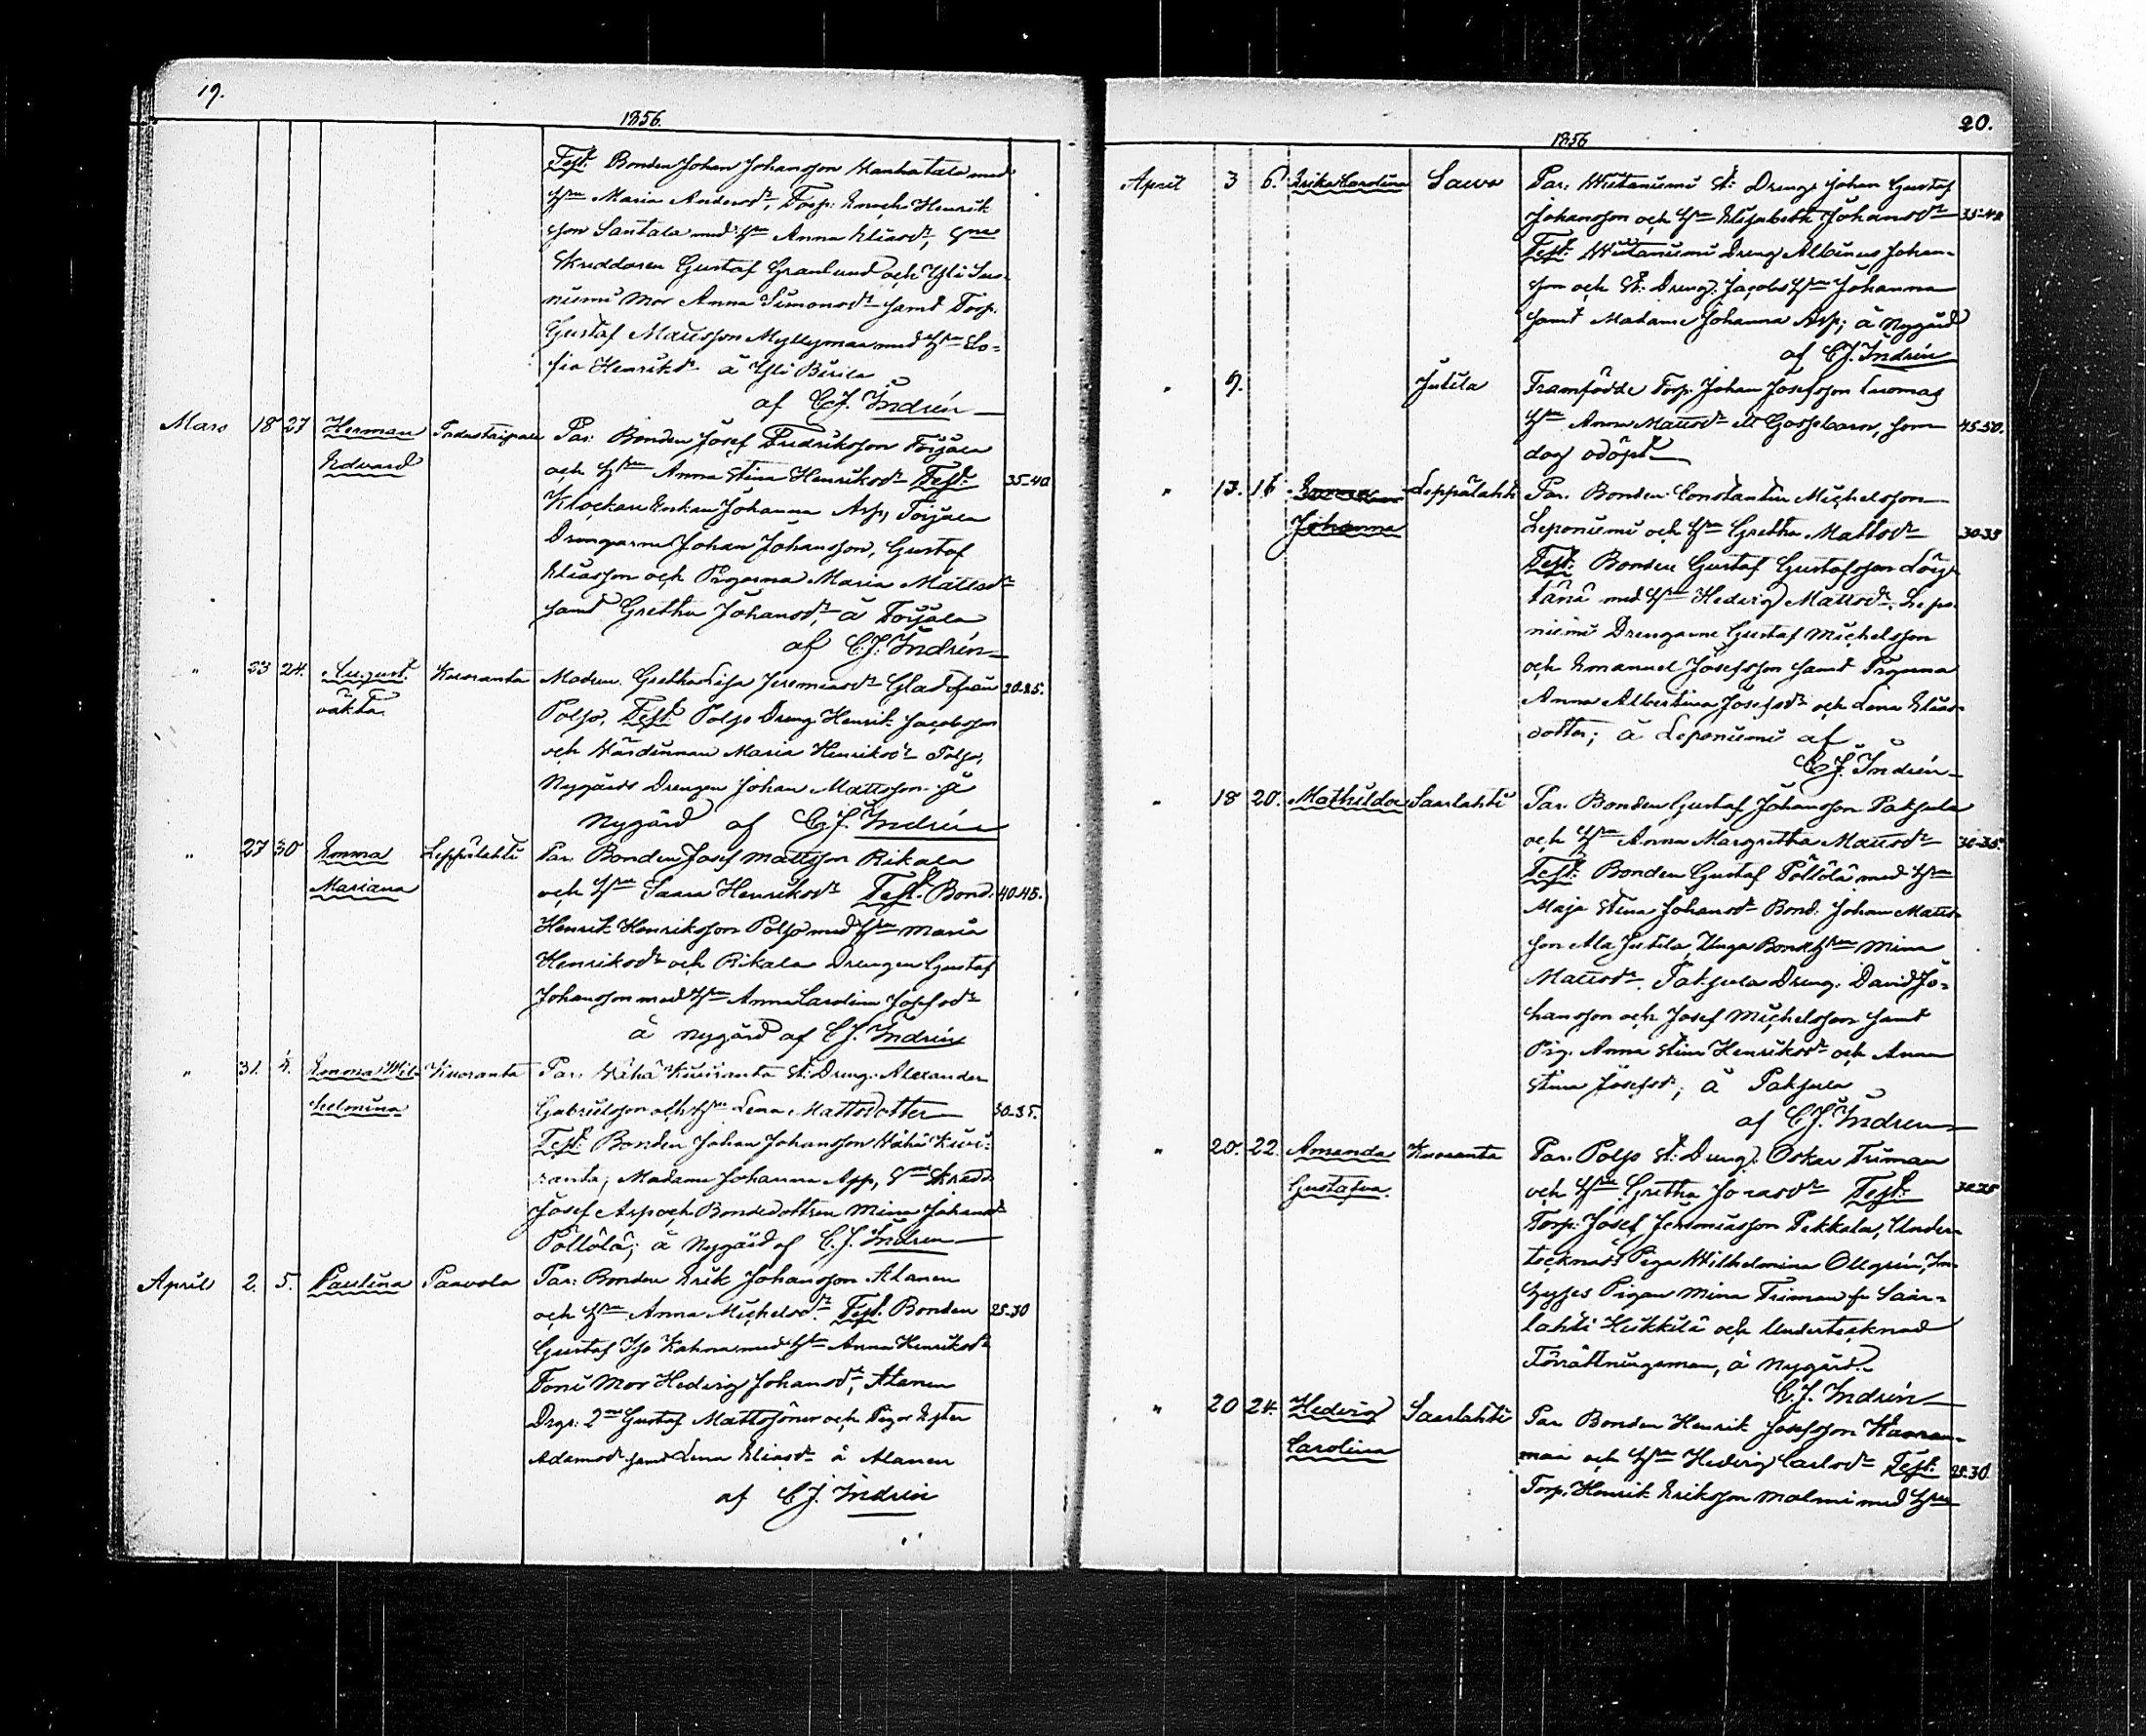 19.
1856.
Test. Bonden Johan Johansson Kanhatalo med
Hru Maria Andersdr, Torp: Enoch Henrik
sson Santala med Hru Anna Eliasdr,
Skreddaren Gustaf Granlund och Yli
niemi Mor Anna Simonsdr samt Torp.
Gustaf Mattsson Myllymaa med Hru So-
fia Henriksdr å Yli
af C.J. Indrén
Mars 18 27 Herman Padastaipale Par: Bonden Josef Fredriksson Toijala
Edvard och Hru Anna Stina Henriksdr Test. 35-40
Klockare Enkan Johanna Asp, Toijala
Drengarne Johan Johansson, Gustaf
Eliasson och Pigorna Maria Mattsdr
samt Gretha Johansdr, å Toijala
af C.J. Indrén
" 23 24. August. Kuoranta Modren Gretha Lisa Jeremiasdr Glad från 20-25.
oäkta. Poljo, Test. Poljo Dreng Henrik Jacobsson
och Värdinnan Maria Henriksdr Poljo,
Nygårds Drengen Johan Mattsson å
Nygård af C.J. Indrén
" 27 30 Emma Leppälahti Par. Bonden Josef Mattsson Rikala
Mariana och Hru Saara Henriksdr Test. Bond. 40-45.
Henrik Henriksson Poljo med Hru Maria
Henriksdr och Rikala Drengen Gustaf
Johansson med Hru Anna Carolina Josefsdr
å Nygård af C.J. Indrén
" 31. 4. Emma Wil- Kuoranta Par. Wähä Kuiranta St: Dreng. Alexander
helmina Gabrielsson och Hru Lena Mattsdotter 30-35.
Test: Bonden Johan Johansson Wähä Kuui-
ranta, Madame Johanna App, Skredd.
Josef Asp och Bondedottren Mina Johansdr
Pöllölä; å Nygård af C.J. Indren
April 2. 5. Paulina Paavola Par: Bonden Erik Johansson Alanen
och Hru Anna Michelsdr Test. Bonden 25-30
Gustaf Iso Kahra med Hru Anna Henriksdr
Toni Mor Hedvig Johansdr, Alanen
Drgr: 2ne Gustaf Mattssöner och Pigor Ester
Adamsdr samt Lena Eliasdr å Alanen
af C.J. Indrén
20.
1856
April 3 6. Erika Carolina Savo Par. Witaniemi St: Dreng Johan Gustaf
Johansson och Hru Elisabeth Johansdr 35-40
Test: Witaniemi Dreng Albinus Johan-
sson och St: Dreng. Jacobs Hru Johanna
samt Madame Johanna Asp; å Nygård
af C.J. Indrén
" 9. Jutila Framfödde Torp. Johan Josefsson Luomas
Hru Anna Mattsdr ett Gossebarn, som 45-50.
dog odöpt
" 13. 16 Emma Leppälahti Par. Bonden Constantin Michelsson
Johanna Leponiemi och Hru Gretha Mattsdr 30-35
Test: Bonden Gustaf Gustafsson Löy-
tänä med Hru Hedvig Mattsdr. Lepo-
niemi Drengarne Gustaf Michelsson
och Emanuel Josefsson samt Pigorna
Anna Albertina Josefsdr och Lena Elias-
dotter; å Leponiemi af
C.J. Indrén
" 18 20. Mathilda Saarlahti Par. Bonden Gustaf Johansson Pakjula
och Hru Anna Margretha Mattsdr 30-35.
Test: Bonden Gustaf Pöllölä med Hru
Maja Stina Johansdr Bond. Johan Matts-
son Ala Jutila, Unga Bond. Hru Mina
Mattsdr, Pakjula Dreng. David Jo-
hansson och Josef Michelsson samt
Pig. Anna Stina Henriksdr och Anna
Stina Josefsdr; å Pakjula
af C.J. Indren
" 20. 22. Amanda Kuoranta Par. Poljo St: Dreng. Oskar Friman
Gustafva. och Hru Gretha Jonasdr Test:
Torp. Josef Jeremiasson Pekkala, Under-
tecknads Piga Wilhelmina Ollgrén, In-
hyses Pigan Mina Friman fr Saar-
lahti Heikkilä och Undertecknad
Förrättningsman, å Nygård.
C.J. Indrén
" 20 24. Hedvig Saarlahti Par Bonden Henrik Josefsson
Carolina och Hru Hedvig Carlsdr Test: 25-30.
Torp. Henrik Eriksson Malmi med Hru